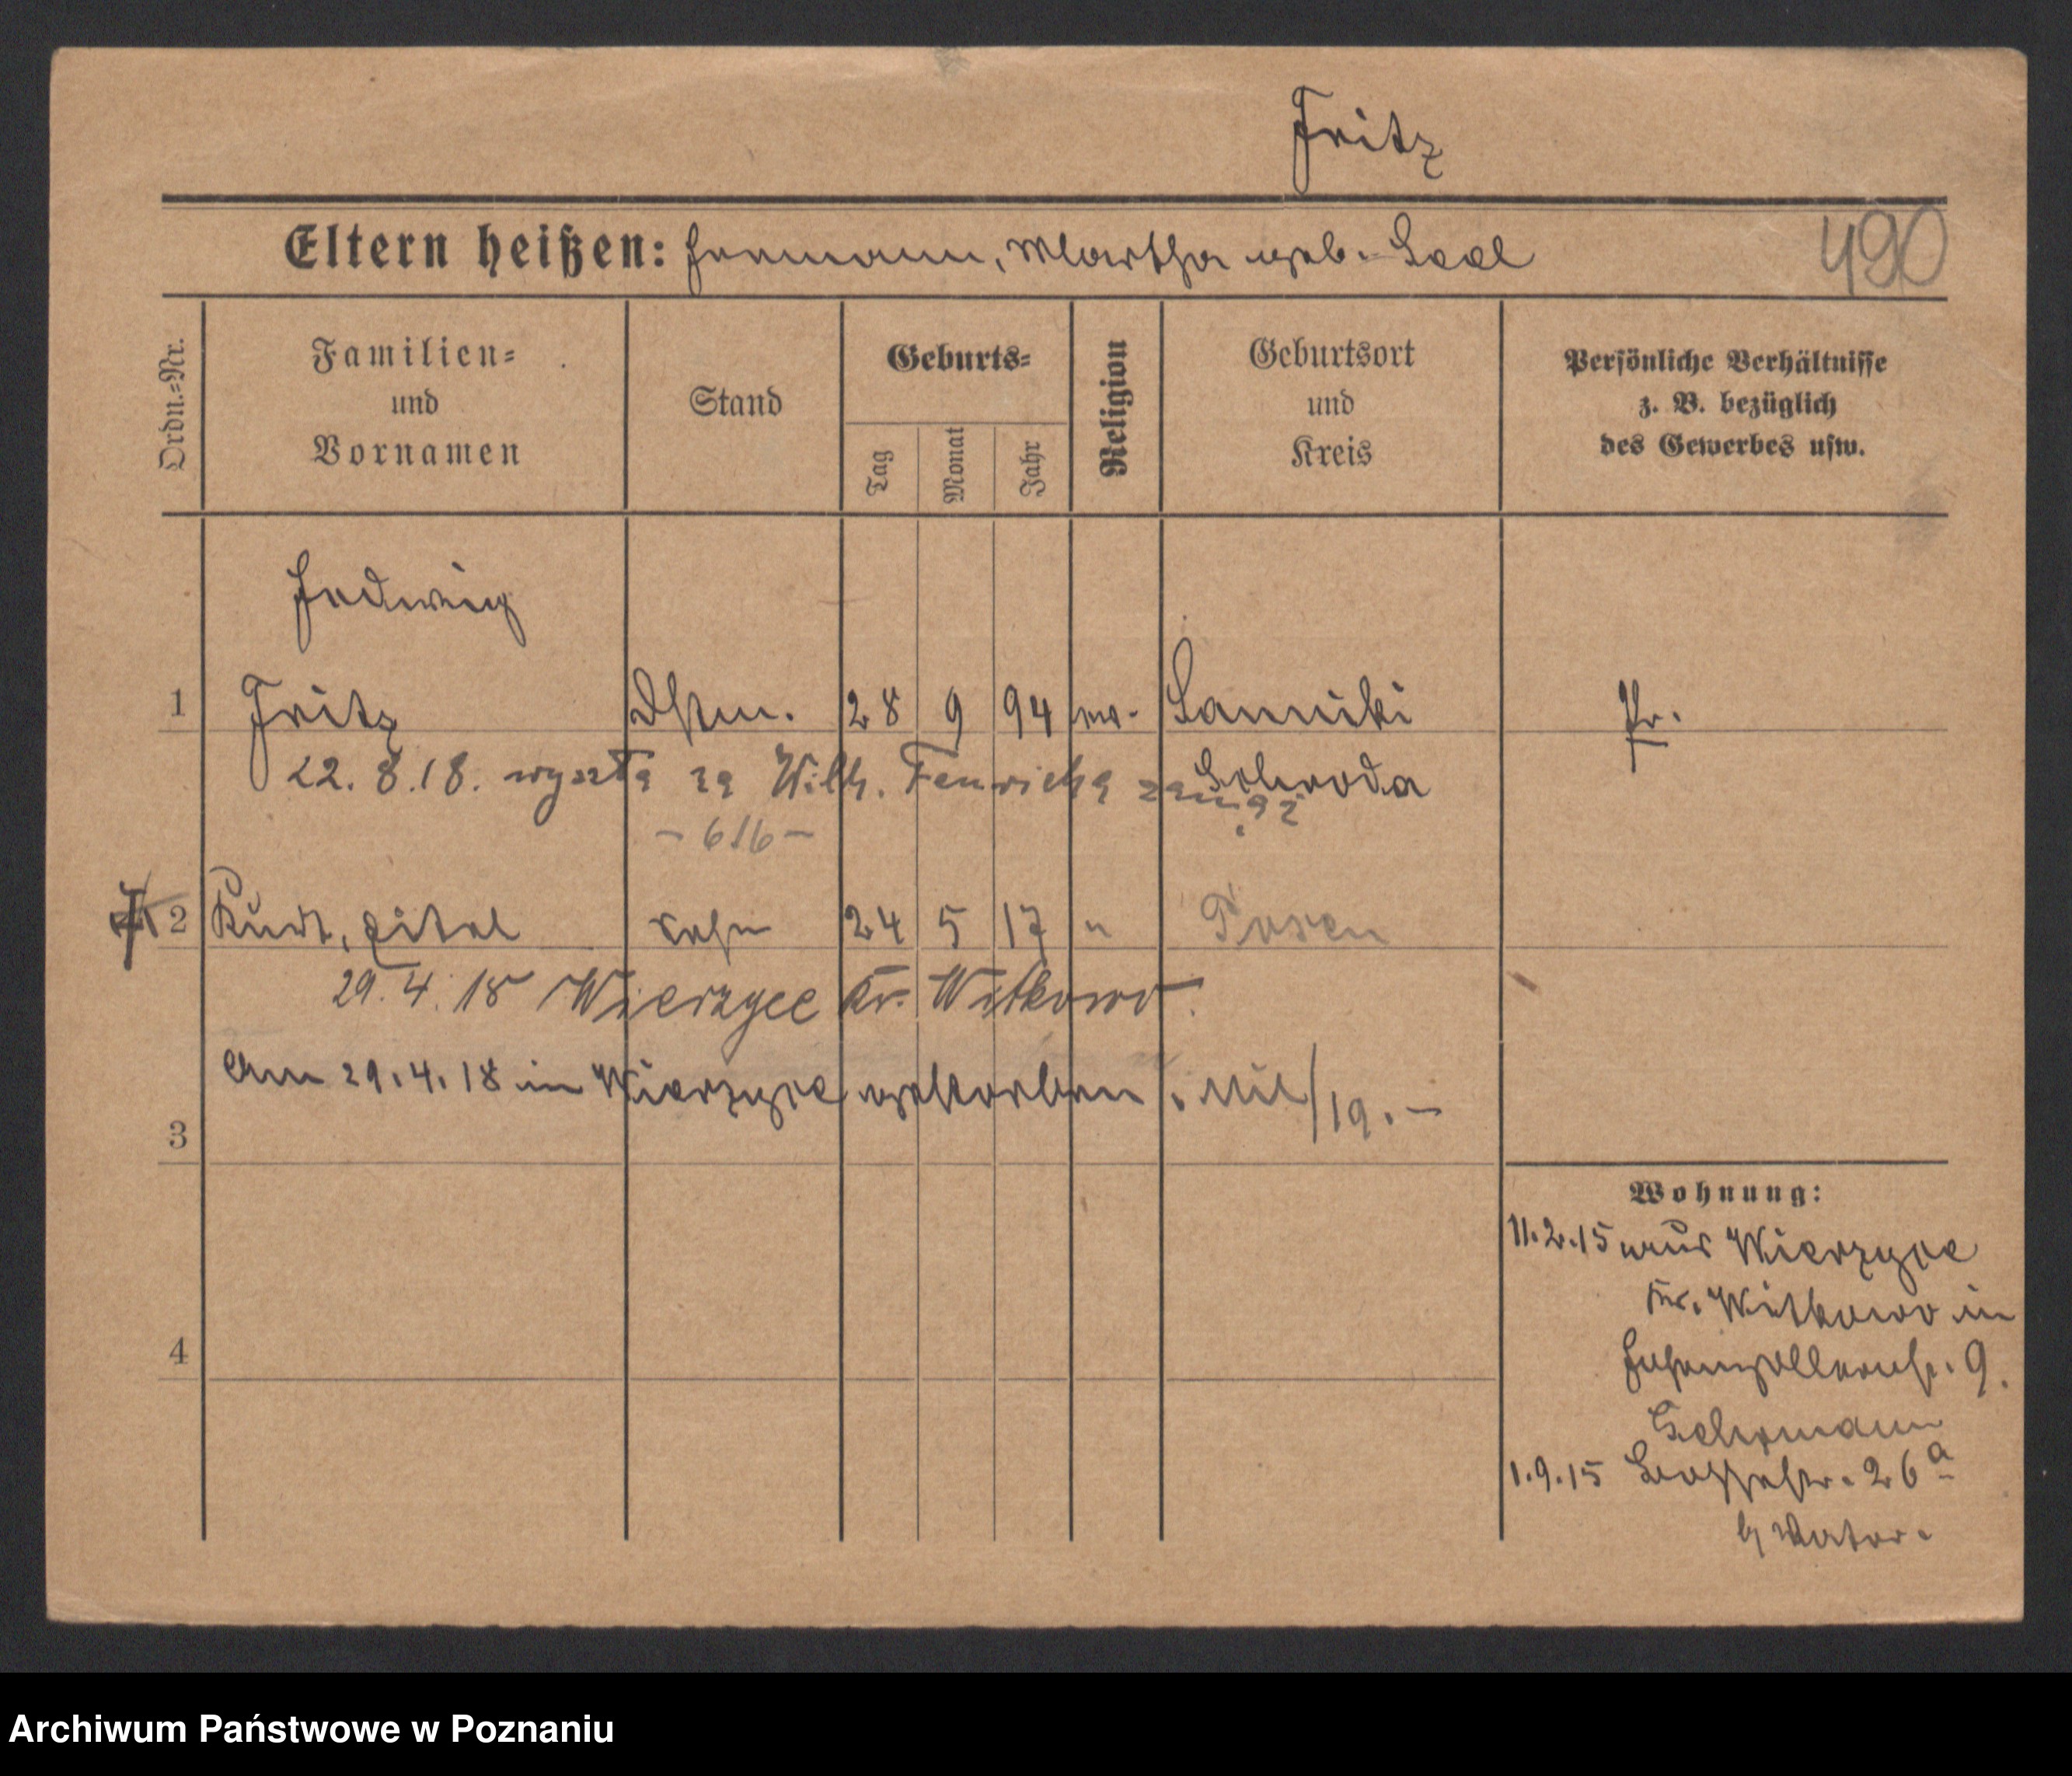 Fritz
Eltern heißen: Hermann, Martha geb. Saal
490
Ordn.=Nr.
Familien=
und
Vornamen
Stand
Geburts=
Tag
Monat
Jahr
Religion
Geburtsort
und
Kreis
Persönliche Verhältnisse
z. B. bezüglich
des Gewerbes usw.
Hedwig
1 Fritz 28 9 94 ev. Sanniki Pr.
Schroda
22. 8. 18. wyszła za Wilh. Fenricha zamąż
- 616 -
2 Kurt, Sohn 24 5 17 " Posen
29. 4. 18 Wierzyce Kr. Witkowo.
Am 29. 4. 18 in Wierzyce gestorben. /19. -
3
4
Wohnung:
11. 2. 15 aus Wierzyce
Kr. Witkowo in
Hohenzollernstr. 9.
1. 9. 15 26a